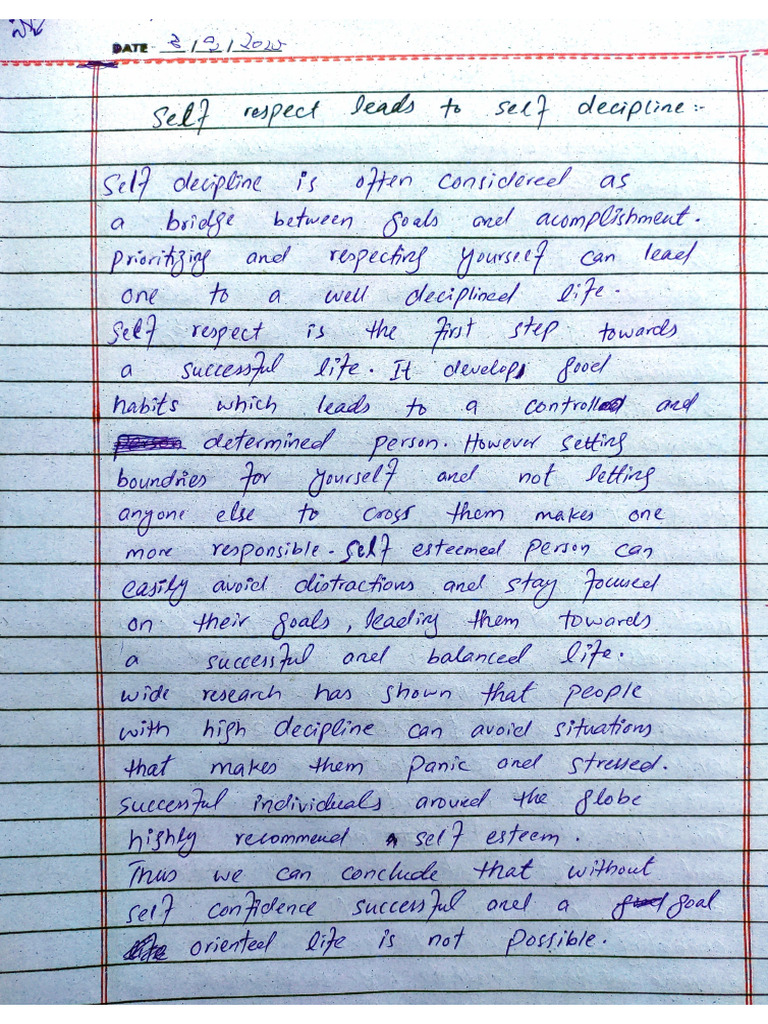 DATE 3/9/2025
Self respect leads to self decipline:-
Self decipline is often considered as
a bridge between goals and acomplishment.
Prioritizing and respecting yourself can lead
one to a well deciplined life.
Self respect is the first step towards
a successful life. It develops good
habits which leads to a controlled and
determined person. However setting
boundries for yourself and not letting
anyone else to cross them makes one
more responsible. Self esteemed person can
easily avoid distractions and stay focused
on their goals, leading them towards
a successful and balanced life.
wide research has shown that people
with high decipline can avoid situations
that makes them panic and stressed.
successful individuals around the globe
highly recommend self esteem.
Thus we can conclude that without
self confidence successful and a goal
oriented life is not possible.